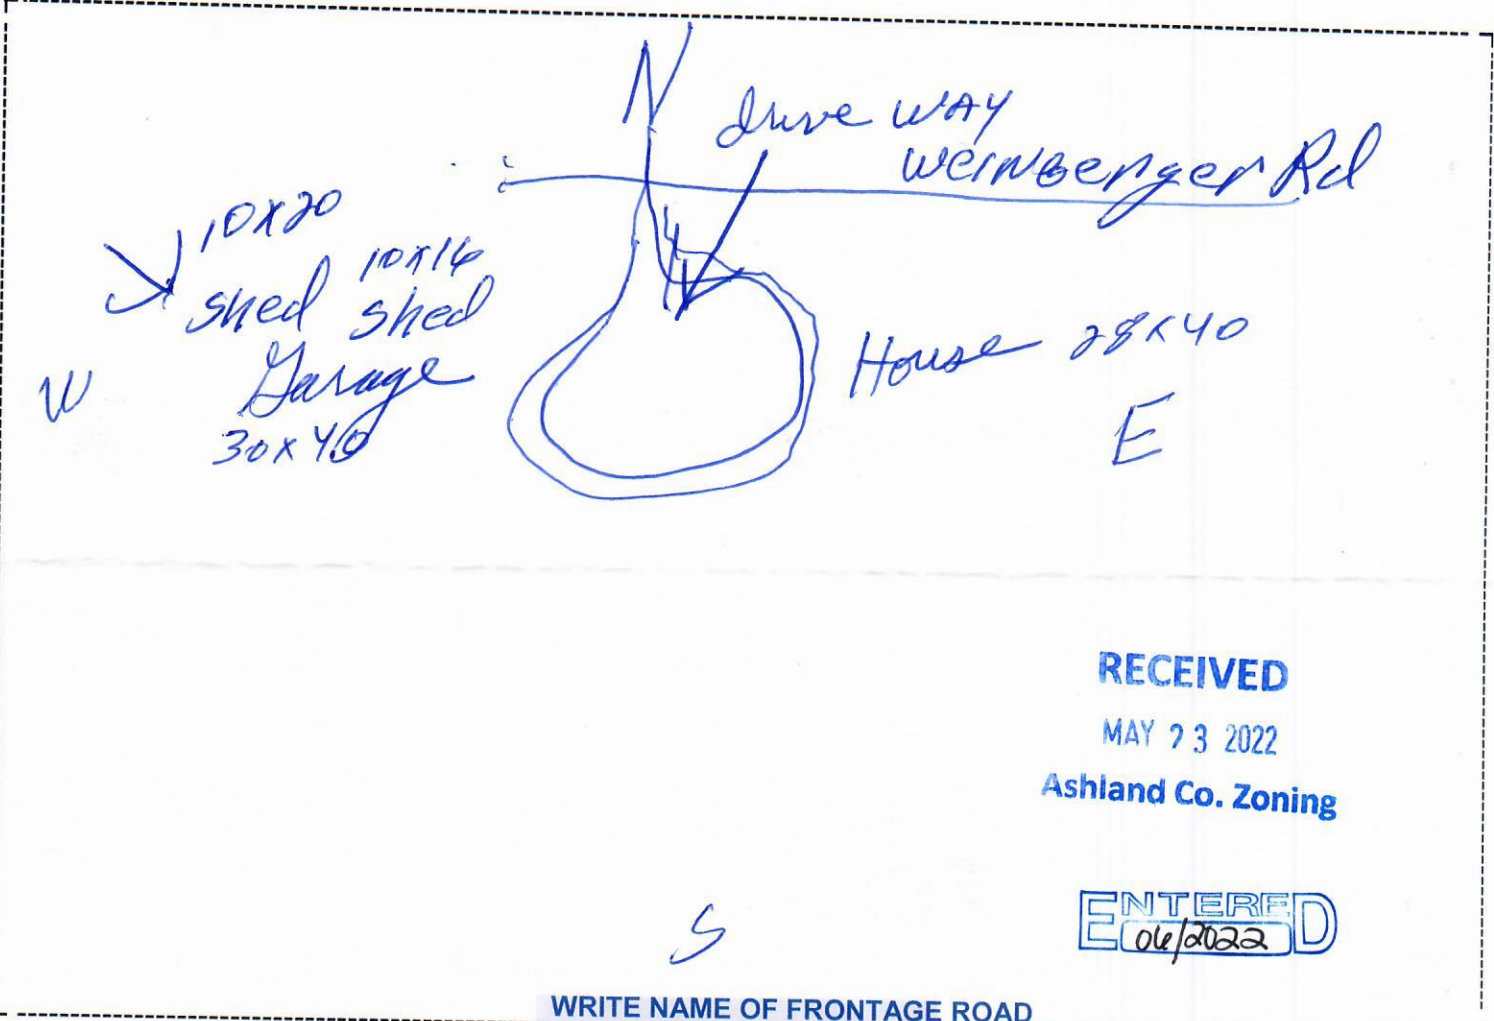 N
drive WAY
Weinberger Rd
10x20
10x16
shed shed
House 28x40
W
Garage
30x40
E
RECEIVED
MAY 23 2022
Ashland Co. Zoning
ENTERED
06/2022
S
WRITE NAME OF FRONTAGE ROAD